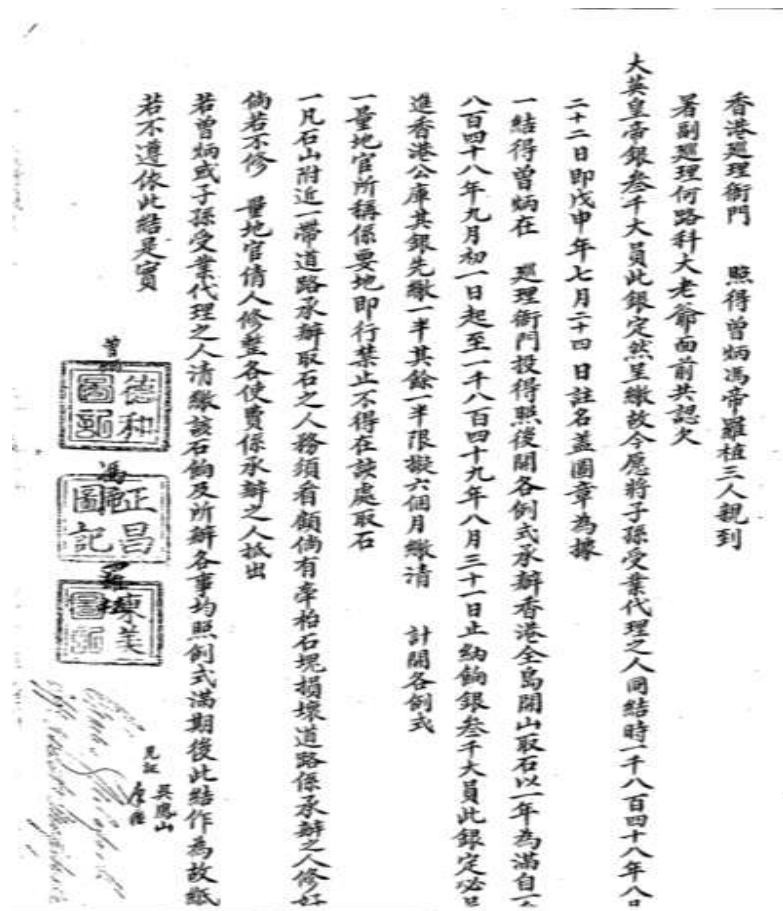 香港廵理衙門　照得曾炳馮帝羅植三人親到
署副廵理何路科大老爺面前共認欠
大英皇帝銀叁千大員此銀定然呈繳故今愿將子孫受業代理之人同結時一千八百四十八年八月
二十二日即戊申年七月二十四日註名盖圖章為據
一結得曾炳在　廵理衙門投得照後開各例式承辦香港全島開山取石以一年為滿自一
八百四十八年九月初一日起至一千八百四十九年八月三十一日止納餉銀叁千大員此銀定必
進香港公庫其銀先繳一半其餘一半限擬六個月繳清　計開各例式
一量地官所稱係要地即行禁止不得在該處取石
一凡石山附近一帶道路承辦取石之人務須看顧倘有牽柏石塊損壞道路係承辦之人修好
倘若不修　量地官倩人修整各使費係承辦之人抵出
若曾炳或子孫受業代理之人清繳該石餉及所辦各事均照例式滿期後此結作為故紙
若不遵依此結是實
曾炳
德和圖記
馮帝
正昌圖記
羅植
東美圖記
見証
吳應山